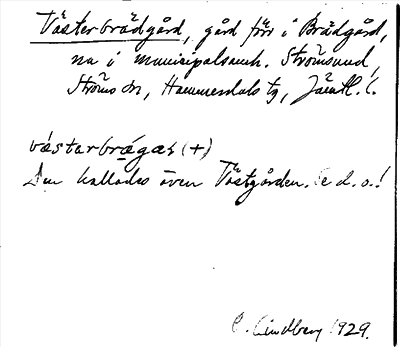 Västerbrädgård, gård förr i Brädgård,
nu i municipalsamh. Strömsund,
Ströms sn, Hammerdals tg, Jämtl. l.
västarbrǫ́gaʂ (+)
Den kallades även Västgården. Se d. o.!
C. Lindberg 1929.